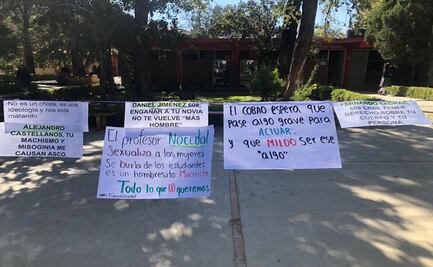 No es un chiste, es una
ideología y nos está
matando.
ALEJANDRO
CASTELLANOS, TU
MACHISMO Y
MISOGINIA ME
CAUSAN ASCO.
DANIEL JIMÉNEZ 608,
ENGAÑAR A TU NOVIA
NO TE VUELVE "MÁS
HOMBRE"
El profesor Noccdal
Sexualiza a las mujeres
Se burla de los estudiantes
es un hombresito Machista
Todo lo que NO queremos
El COBAO ESPERA QUE
PASE ALGO GRAVE PARA
ACTUAR.
Y QUE MIEDO SER ESE
"algo".
FERNANDO
608 CREE TENER
DERECHO SOBRE TU
CUERPO Y TU
PERSONA.